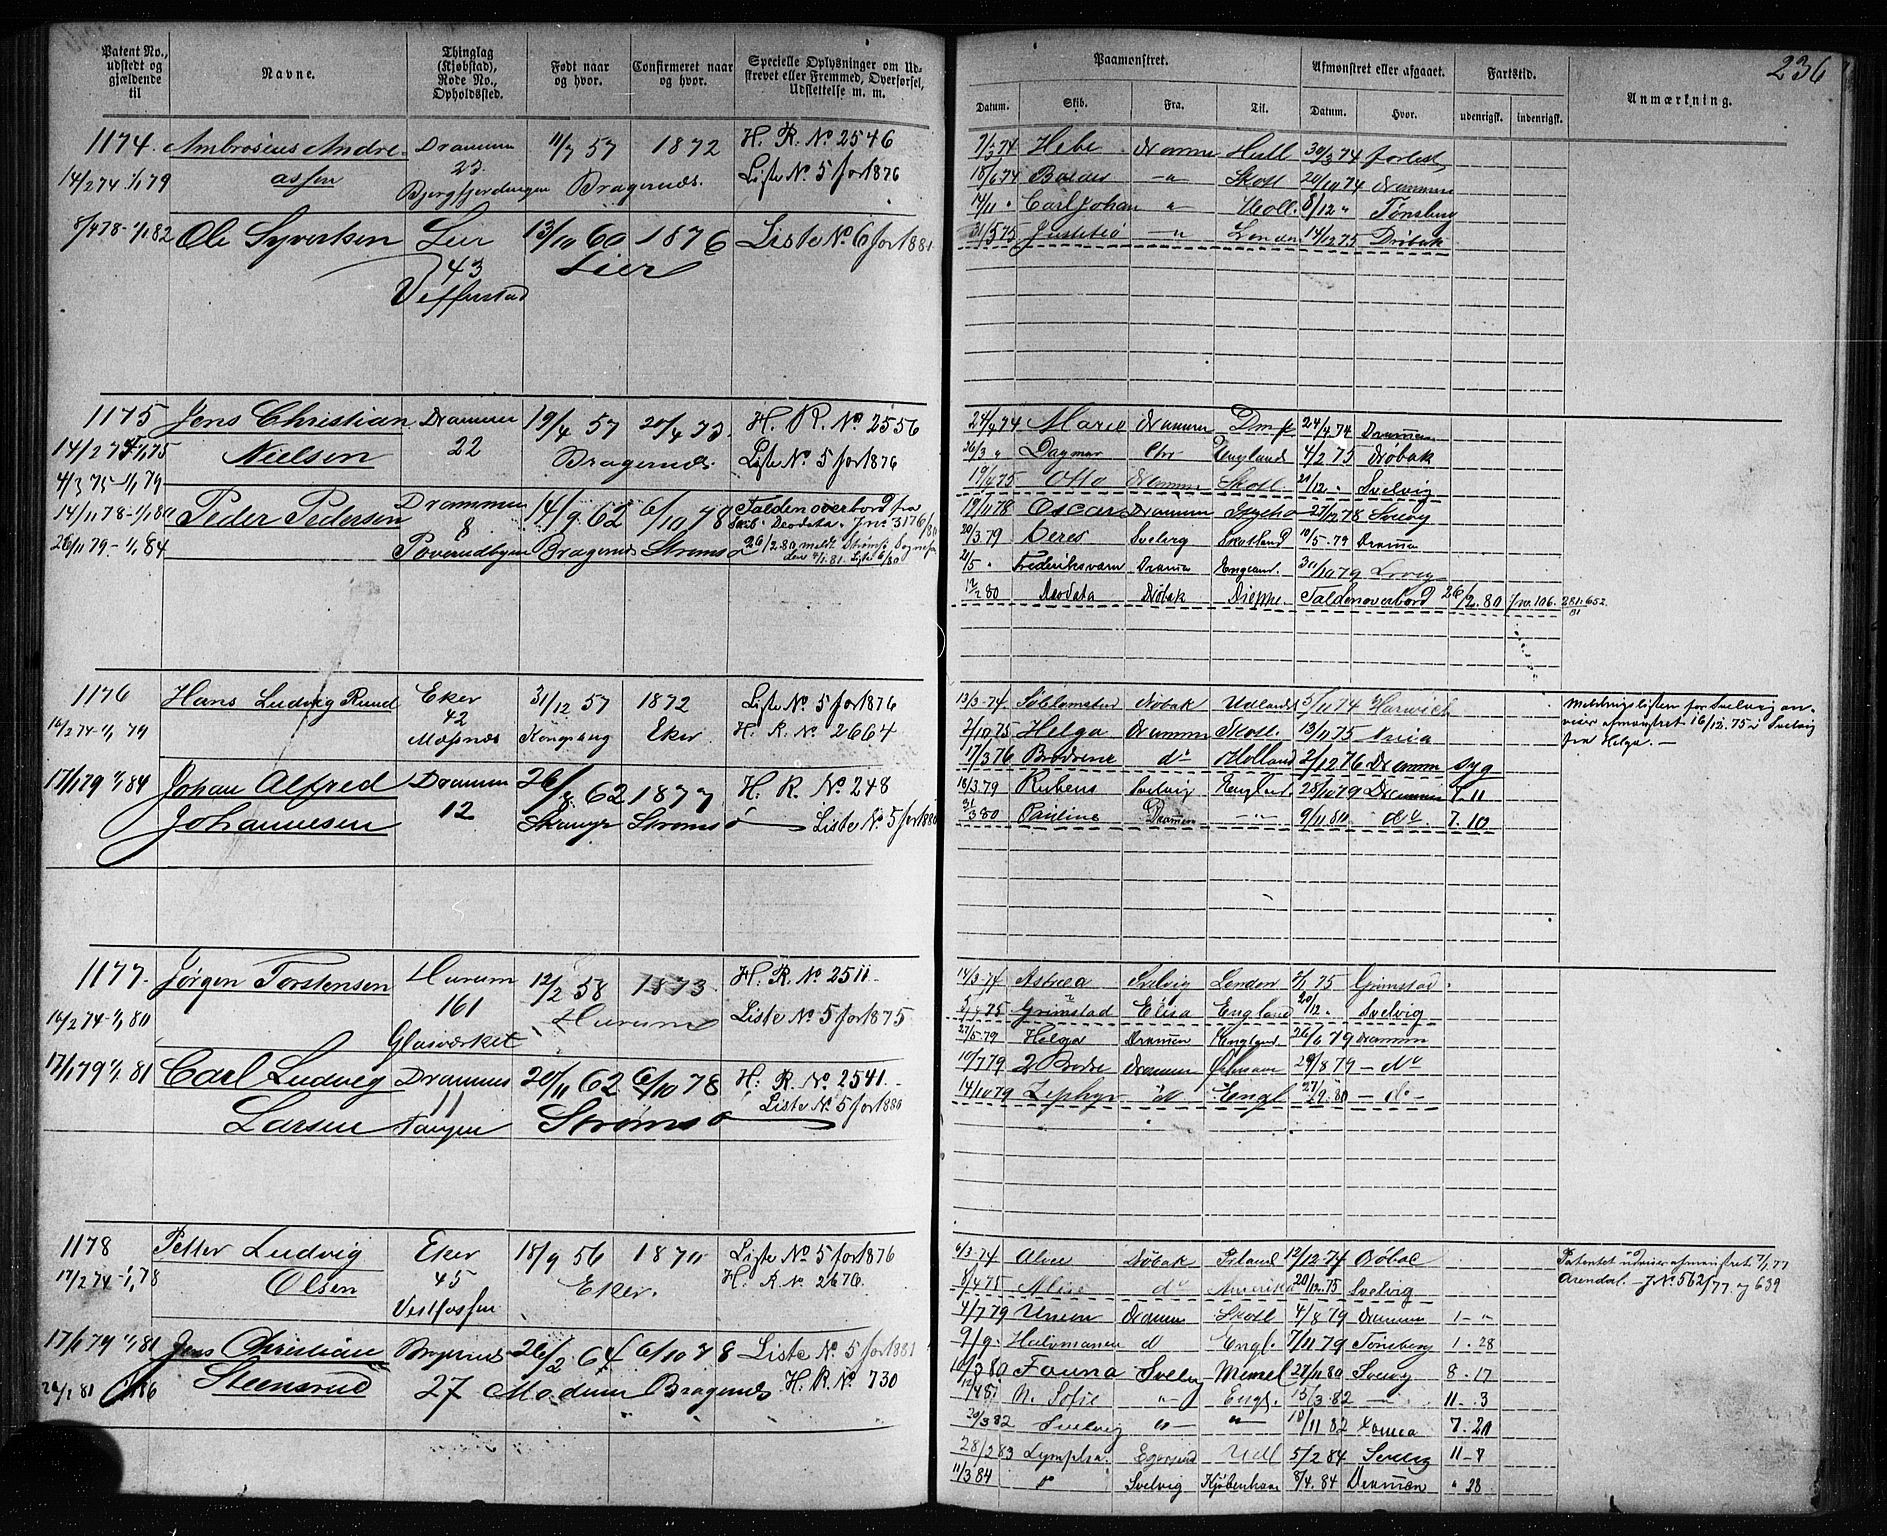 236
Patent No., udstedt og gjældende til
Navne.
Thinglag (Kjøbstad), Rode No., Opholdssted.
Født naar og hvor.
Confirmeret naar og hvor.
Specielle Oplysninger om Udskrevet eller Fremmed, Overførsel, Udslettelse m. m.
Paamønstret.
Datum. Skib. Fra. Til.
Afmønstret eller afgaaet.
Datum. Hvor.
Fartstid.
udenrigsk. indenrigsk.
Anmærkning.
1174. Ambrosius Andre- Drammen 11/7 57 1872 H. R. No 2546
14/2 74 1/1 79 assen 23. Bragernes. Liste No 5 for 1876
8/4 78-1/1 82 Ole Syvertsen Lier 13/10 60 1876 Liste No 6 for 1881
43 Lier
7/3 74 Hebe Dramme Hull 30/3 74 forlist
18/6 74 Balder -"- Skotl 20/10 74 Drammen
14/11 " Carl Johan " 8/12 " Tønsberg
31/5 75 -"- London 14/12 75 Drøbak
1175 Jens Christian Drammen 19/4 57 20/4 73. H. R. No 2556
14/2 74 1/1 75 Nielsen 22 Bragernes. Liste No 5 for 1876
4/3 75-1/1 79
14/11 78-1/1 80 Peder Pedersen Drammen 14/9 62 6/10 78 Falden overbord fra
8 Skib "Deodata" Jno 3176/80
26/11 79-1/1 84 Bragernes Strømsø 26/2 80 meldt Strømsø
24/9 74 Marie Drammen 24/9 74 Drammen
26/3 " Dagmar Chr England 4/2 75 Drøbak
19/4 75 Otto Dramme Skotl 21/12 " Svelvig
19/11 78 Oscar Drammen 27/12 78 Svelvig
20/3 79 Ceres Svelvig Skotland 10/5 79 Dramen
21/5 " Frederiksværn Dramen England. 30/10 79
17/2 80 Deodata Drøbak Dieppe. Falden overbord 26/2 80 Jnr. 106. 281.652
1176 Hans Ludvig Ruud Eker 31/12 57 1872 Liste No 5 for 1876
16/2 74 1/1 79 42 Kongsberg Eker H. R. No 2664
17/1 79 1/1 84 Johan Alfred Drammen 26/8 62 1877 H. R. No 248
Johannesen 12 Strømsø Liste No 5 for 1880
13/3 74 Drøbak Udlandet 5/11 74 Harwich
2/10 75 Helga Dramme Skotl. 13/11 75
17/3 76 Brødrene do Holland 2/12 76 Dramm syg
18/3 79 Rubens Svelvig Engl. 28/10 79 Drammen 7. 11
31/3 80 Pauline Dramen -"- 9/11 80 do 7. 10
Meldingslisten for Svelvig an-
viser afmønstret 16/12. 75 i Svelvig
fra Helga. —
1177. Jørgen Torstensen Hurum 12/2 58 1873 H. R. No 2511
16/2 74-1/1 80 161 Hurum Liste No 5 for 1875
Glasværket
17/1 79 1/1 81 Carl Ludvig Drammen 20/11 62 6/10 78 H. R. No 2541.
Larsen 11 Tangen Strømsø Liste No 5 for 1880
14/3 74 Astræa Svelvig London 2/1 75 Grimstad
Grimstad Elisa England 20/12 " Svelvig
27/5 79 Helga Dramen England 26/6 79 Drammen
10/7 79 2 Brødre Drammen 29/8 79 - do
14/10 79 Zephyr Engl 27/9. 80 - do -
1178 Petter Ludvig Eker 18/9 56 1870 Liste No 5 for 1876
17/2 74-1/1 78 Olsen 45 Eker. H. R. No 2676.
Vestfossen
17/1 79 1/1 81 Jens Christian Bragernes 26/2 64 6/10 78 Liste No 5 for 1881
24/1 81 1/1 86 Steensrud 27 Modum Bragernes H. R. No 730
6/3 74 Drøbak Island 12/12 74 Drøbak
8/4 75 Alise do Amerika 20/12 75 Svelvig
4/7 79 Union Drammen Skotl 4/8 79 Drammen 1 - "
9/9. do Engl. 7/11 79 Tønsberg 1. 28
10/3 80 Fauna Svelvig Memel 27/11 80 Svelvig 8. 17
12/4 81 N. Sofie " Engl. 15/3 82 -"- 11. 3
20/3 82 Svelvig "- "- 10/11 82 7. 20
28/2 83 Egersund Udl 5/2 84 Svelvig 11 - 7
11/3 84 Svelvig Kjøbenhavn 8/4. 84 Drammen " 28
Patentet udviser afmønstret 7/1 77
Arendal. — J No 562/77 og 639